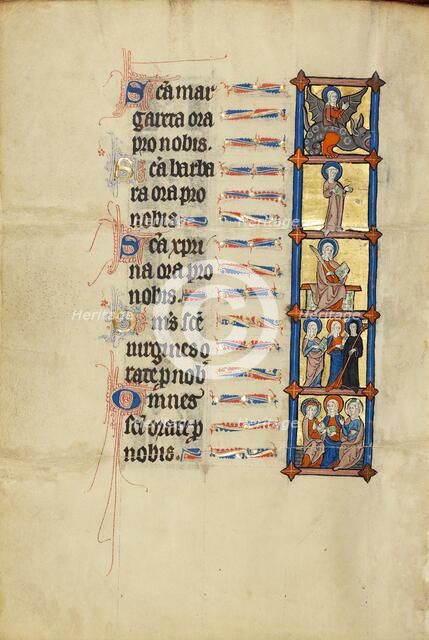 Sca mar
gareta ora
pro nobis.
Sca barba
ra ora pro
nobis
Sca xpri
na ora pro
nobis.
Oms sce
uirgines o
rate p nob
Omnes
sci orate p
nobis.
Heritage
Heritage
Heritage
Heritage